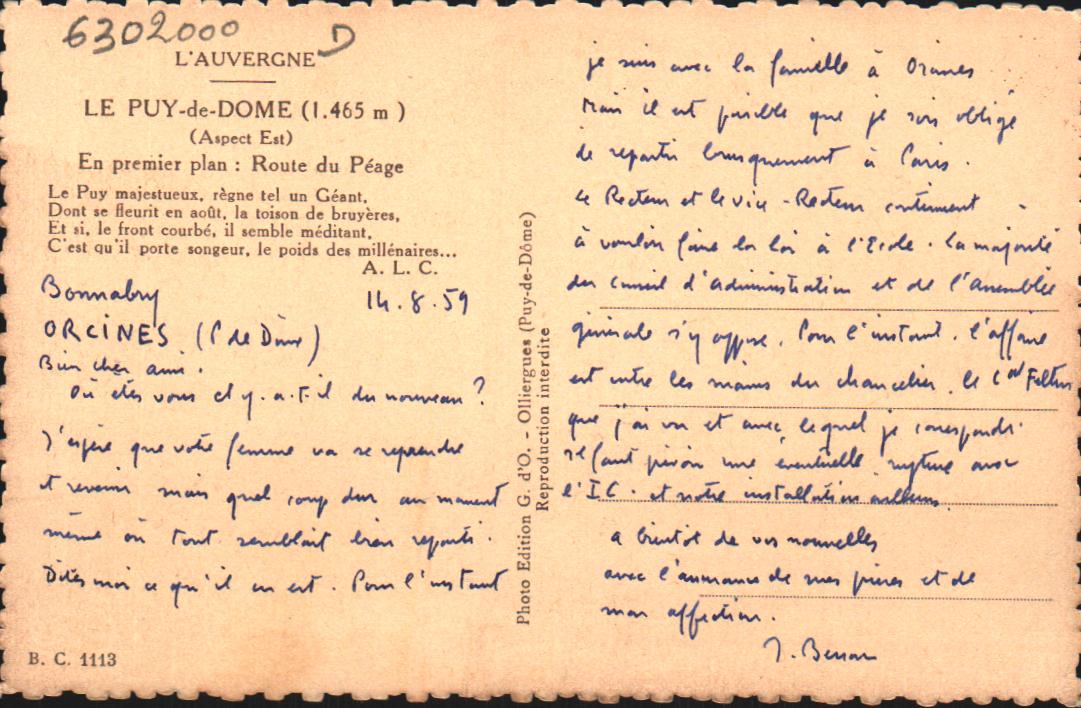 6302000 D
L'AUVERGNE
LE PUY-de-DOME (1.465 m)
(Aspect Est)
En premier plan : Route du Péage
Le Puy majestueux, règne tel un Géant,
Dont se fleurit en août, la toison de bruyères,
Et si, le front courbé, il semble méditant,
C'est qu'il porte songeur, le poids des millénaires...
A. L. C.
Bonnabry 14.8.59
ORCINES (P de Dôme)
Bien cher ami.
Où êtes vous et y.a.t-il du nouveau ?
J'espère que votre femme va se reprendre
et revenir mais quel coup dur au moment
même où tout semblait bien reparti.
Dites moi ce qu'il en est. Pour l'instant
B. C. 1113
Photo Edition G. d'O. - Olliergues (Puy-de-Dôme)
Reproduction interdite
je suis avec la famille à
Mais il est possible que je sois obligé
de repartir brusquement à Paris.
Le Recteur et le vice-Recteur continuent
à vouloir faire la loi à l'Ecole. La majorité
du conseil d'administration et de l'Assemblée
générale s'y oppose. Pour l'instant. l'affaire
est entre les mains du chancelier. le Cal Feltin
que j'ai vu et avec lequel je corresponds.
Il faut prévoir une éventuelle rupture avec
l'I C. et notre installation ailleurs.
a bientôt de vos nouvelles
avec l'assurance de mes prières et de
mon affection.